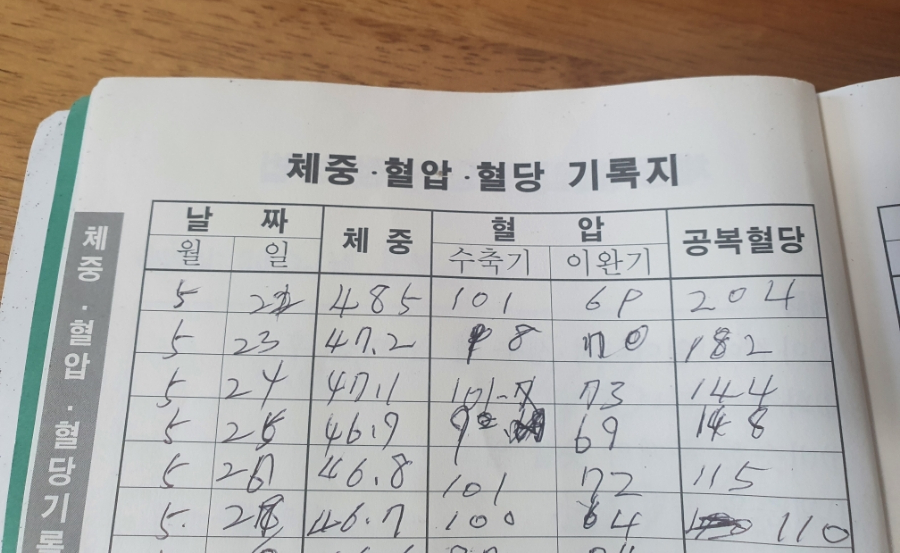 체중·혈압·혈당 기록지
체중·혈압·혈당기록
날 짜 체 중 혈 압 공복혈당
월 일 수축기 이완기
5 22 485 101 69 204
5 23 47.2 98 70 182
5 24 47.1 101 73 144
5 25 46.9 69 148
5 46.8 101 72 115
5. 46.7 100 64 110